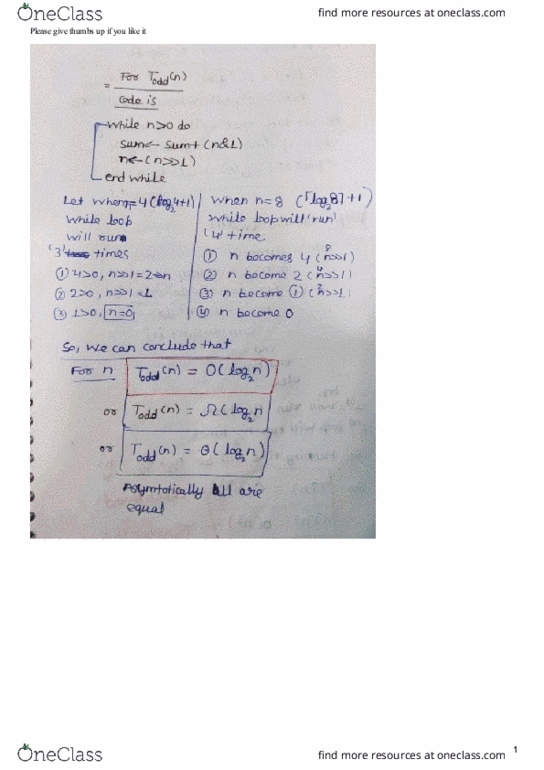 OneClass
find more resources at oneclass.com
Please give thumbs up if you like it
= For Todd(n)
code is
while n>0 do
sum← sum+ (n&1)
n←(n>>1)
end while
Let when n=4 (log₂4+1)
while loop
will run
'3' times
① 4>0, n>>1=2
② 2>0, n>>1=1
③ 1>0, n=0
when n=8 (⌈log₂8⌉+1)
while loop will 'run'
'4' time
① n becomes 4 (8>>1)
② n become 2 (4>>1)
③ n become ① (2>>1)
④ n become 0
So, we can conclude that
For n Todd(n) = O(log₂n)
or Todd(n) = Ω(log₂n
or Todd(n) = θ(log₂n)
Asymtotically all are
equal
OneClass
find more resources at oneclass.com
1